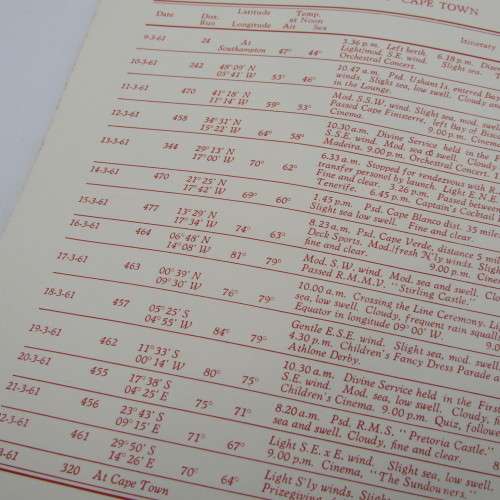 CAPE TOWN
Date Dist. Run Latitude Longitude Temp. at Noon Air Sea Itinerary
9-3-61 24 At Southampton 47° 44° 5.36 p.m. Left berth. 6.18 p.m.
Light/mod. S.E. wind. Slight sea.
Orchestral Concert.
10-3-61 242 48° 09' N 05° 41' W 53° 46° 10.47 a.m. Psd. Ushant Is. entered Bay
winds. Slight sea, low swell. Cloudy
in the Lounge.
11-3-61 470 41° 18' N 11° 14' W 59° 53° Mod. S.S.W. wind. Slight sea, mod.
Passed Cape Finisterre, left Bay of
Cinema. 9.00 p.m.
12-3-61 458 34° 31' N 15° 22' W 64° 58° 10.30 a.m. Divine Service held in the
S.S.E. wind. Mod. sea & swell. Cloudy
Madeira. 9.00 p.m. Orchestral Concert.
13-3-61 344 29° 13' N 17° 00' W 70° 62° 6.33 a.m. Stopped for rendezvous with
transfer personel by launch. Light E.N.E.
Fine and clear. 3.26 p.m. Passed between
Tenerife. 6.45 p.m. Captain's Cocktail
14-3-61 470 21° 25' N 17° 42' W 69° 60° 1.45 p.m. Psd. Cape Blanco dist. 35
Slight sea low swell. Fine and clear.
15-3-61 477 13° 29' N 17° 34' W 74° 63° 8.23 a.m. Psd. Cape Verde, distance 5
Deck Sports. Mod./fresh N'ly winds. Slight
fine and clear. 9.00 p.m.
16-3-61 464 06° 48' N 14° 08' W 81° 79° Mod. S.W. wind. Mod. sea and swell.
Passed R.M.M.V. "Stirling Castle."
17-3-61 463 00° 39' N 09° 30' W 76° 79° 10.00 a.m. Crossing the Line Ceremony.
sea, low swell. Cloudy, frequent rain
Equator in longitude 09° 00' W. 9.00
18-3-61 457 05° 25' S 04° 55' W 84° 79° Gentle E.S.E. wind. Slight sea, mod. swell.
4.30 p.m. Children's Fancy Dress Parade
Athlone Derby.
19-3-61 462 11° 33' S 00° 14' W 80° 75° 10.30 a.m. Divine Service held in the First
S.E. wind. Mod. sea, low swell. Cloudy,
Children's Cinema. 9.00 p.m. Quiz,
20-3-61 455 17° 38' S 04° 25' E 75° 71° 8.20 a.m. Psd. R.M.S. "Pretoria Castle."
sea and swell. Cloudy, fine and clear.
21-3-61 456 23° 43' S 09° 15' E 71° 67° Light S.E. x E. wind. Slight sea, low swell.
9.00 p.m. Cinema, "The Sundowners."
2-3-61 461 29° 50' S 14° 26' E 70° 64° Light S'ly winds. Slight
Prizegiving
3-61 320 At Cape Town